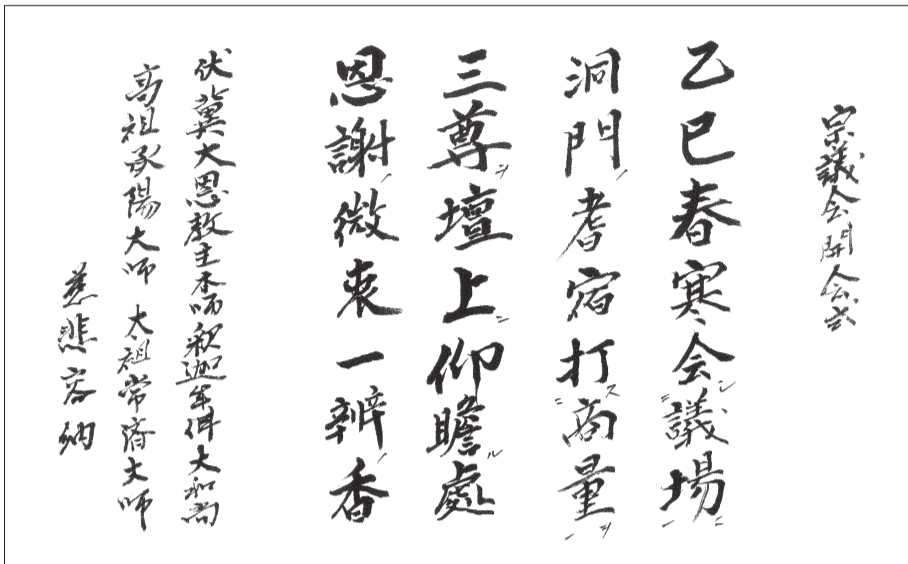 宗議会開会式
乙巳春寒会議場
洞門耆宿打商量
三尊壇上仰瞻處
恩謝微衷一瓣香
伏冀大恩教主本師釈迦牟尼大和尚
高祖承陽大師 太祖常済大師
慈悲容納